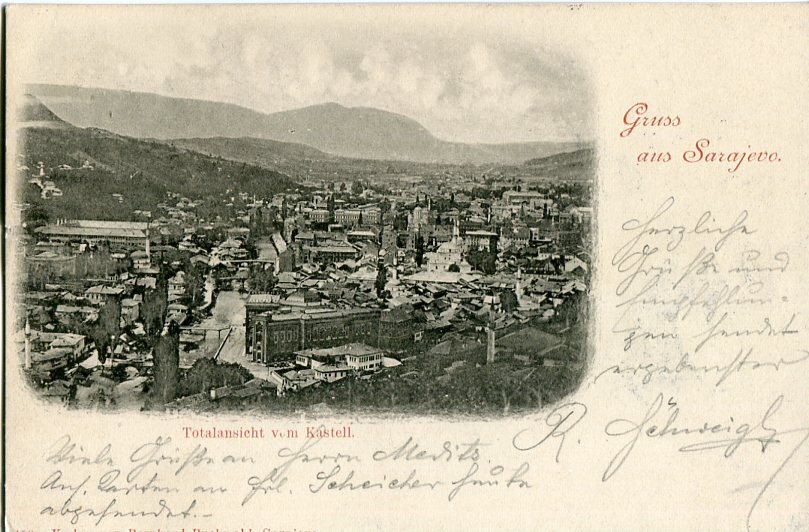 Gruss
aus Sarajevo.
Herzliche
Grüße und
Empfehlun-
gen sendet
ergebenster
R.
Totalansicht vom Kastell.
Viele Grüße an Herrn Meditz
Karten an Frl. Scheicher heute
abgesendet.-